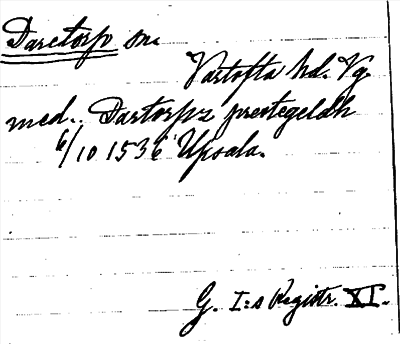 Daretorp sn.
Vartofta hd. Vg.
med. Dartorps prestegeldh
6/10 1536 Upsala.
G. I:s Registr. XI.